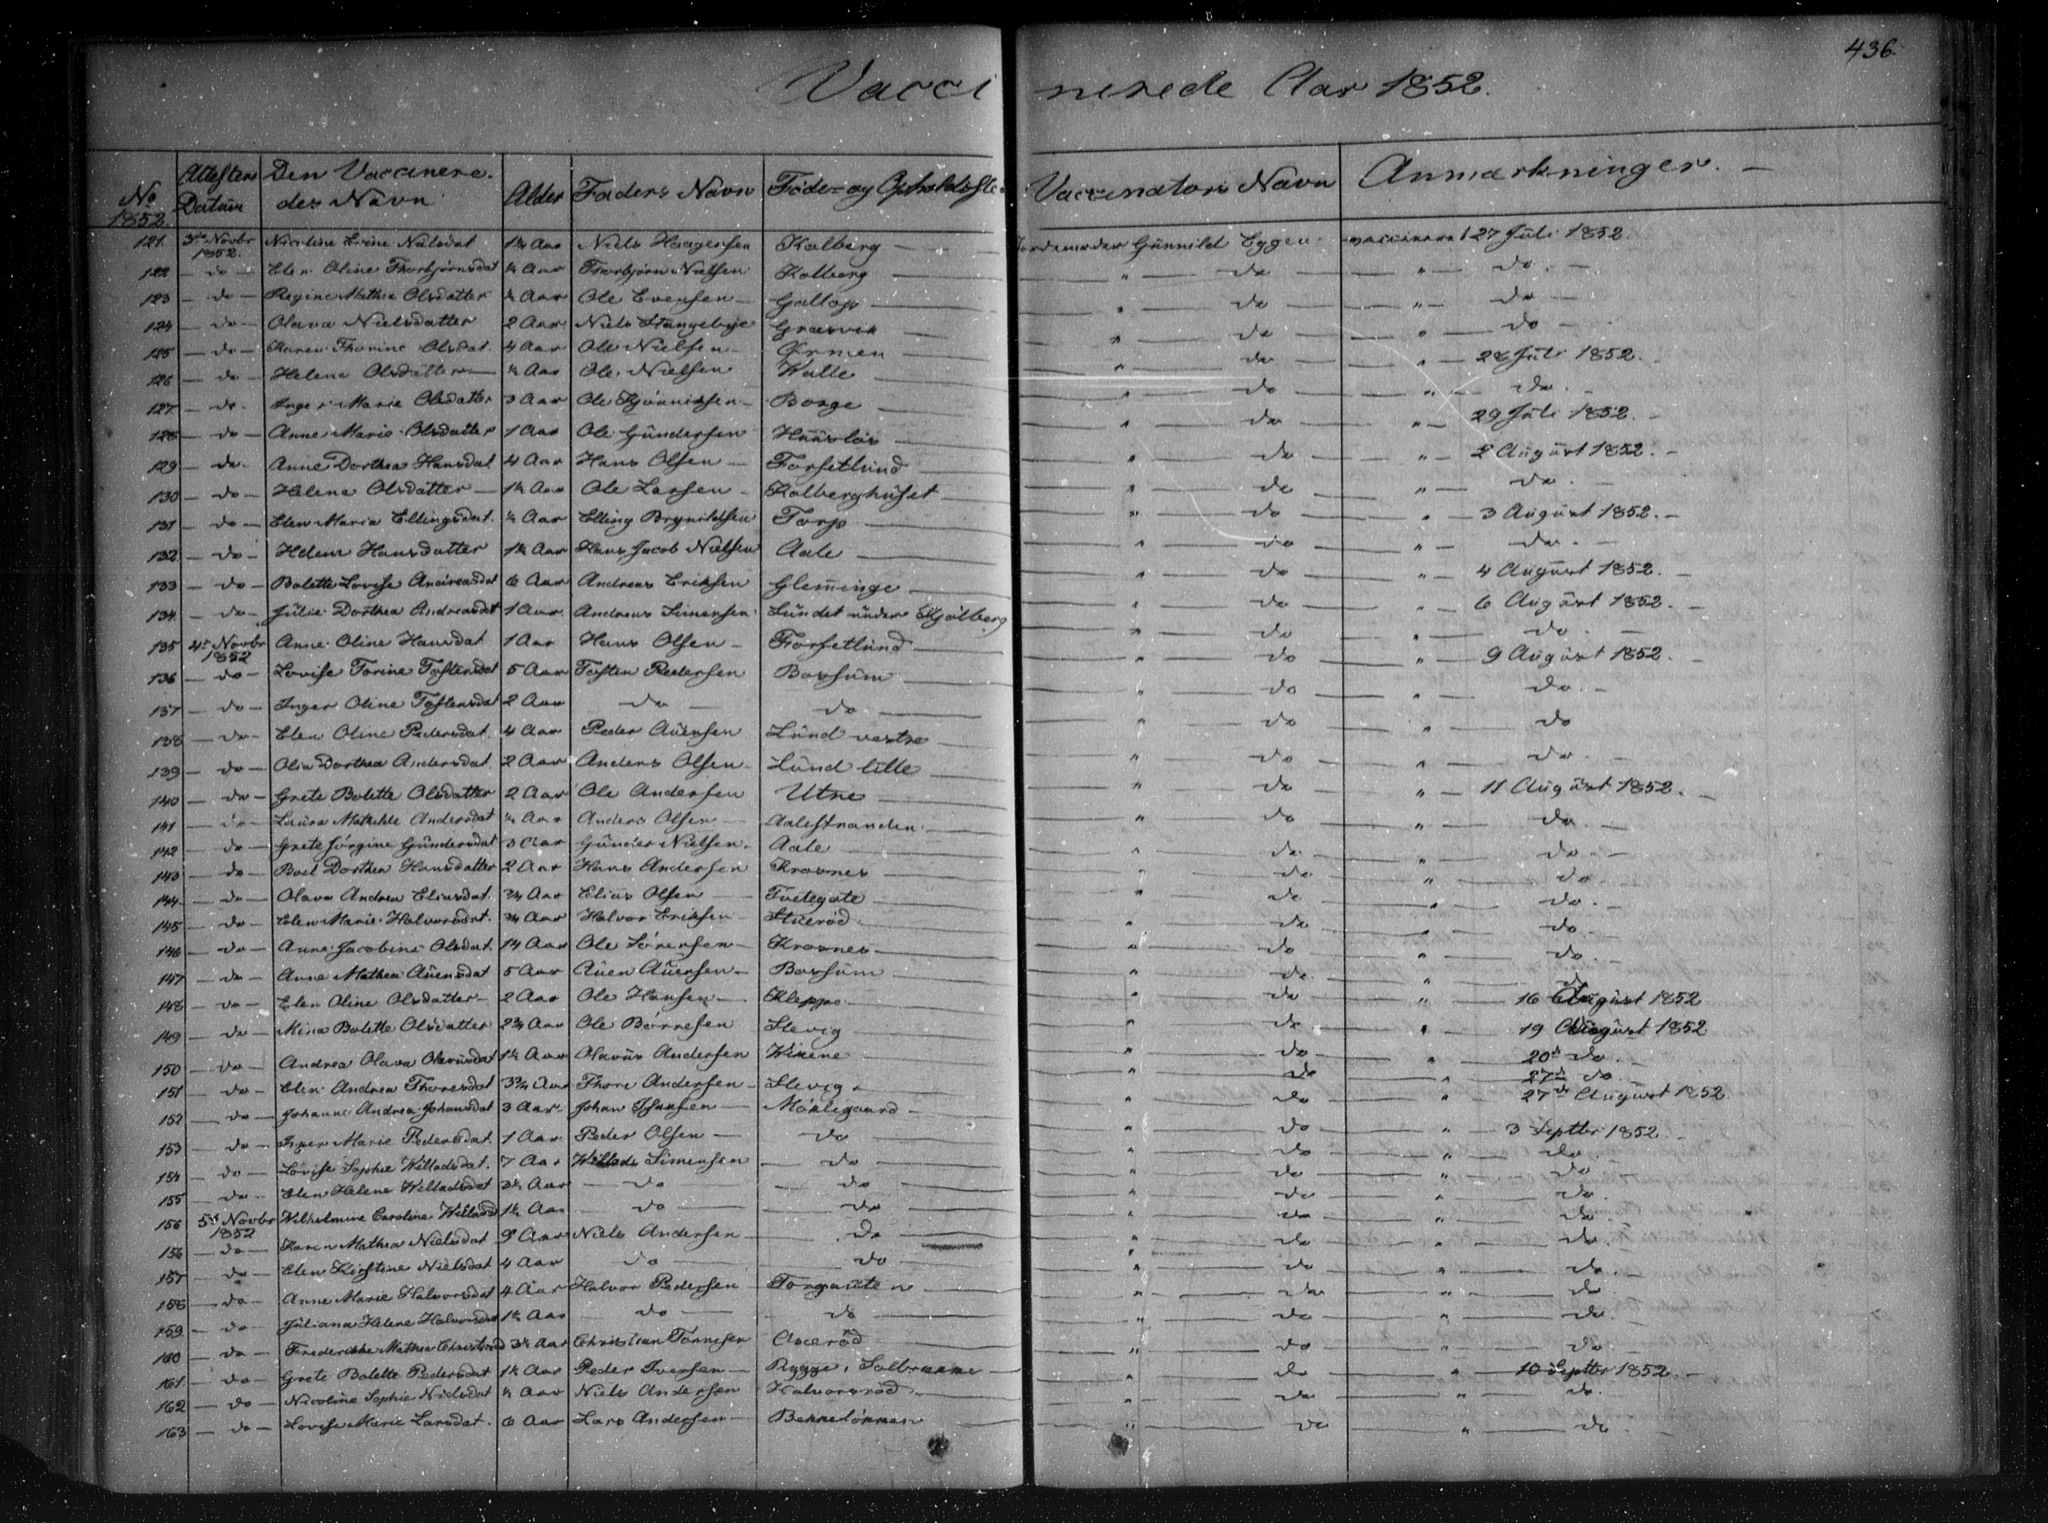 436.
Vaccinerede Aar 1852.
No 1852 | Attestens Datum | Den Vaccinere. des Navn | Alder | Faders Navn | Føde- og Opholdsste | Vaccinators Navn | Anmærkninger. —
121. 3de Novbr 1852. Nicoline Evine Nielsdat 1½ Aar Niels Haagensen Kalberg — Jordemoder Gunnild Eggen vaccineret 27 Juli 1852.
122 — do — Elen Oline Thorbjørnsdat ½ Aar Thorbjørn Nielsen Kolberg — " — do — " — do. —
123 — do — Regine Mathea Olsdatter ½ Aar Ole Evensen — Galtop — " — do — " — do —
124 — do — Olava Nielsdatter 2 Aar Niels Stangebye Græsvik — " — do — " — do —
125 — do — Karen Thorine Olsdat. 4 Aar Ole Nielsen — Ørmen — " — do — " — 28 Juli 1852.
126 — do — Helene Olsdatter — ½ Aar Ole Nielsen Kalle — " — do — " — do. —
127 — do. Inger Marie Olsdatter 3 Aar Ole — Borge — " — do — " — 29 Juli 1852. —
128 — do — Anne Marie Olsdatter 1 Aar Ole Gundersen — " — do — " — 2 August 1852. —
129 — do. Anne Dorthea Hansdat. 4 Aar Hans Olsen — Forsetlund — " — do — " — do. —
130 — do — Helene Olsdatter — 1½ Aar Ole Larsen — Kolberghuset — " — do — " — 3 August 1852. —
131 — do — Elen Maria Ellingsdat. ½ Aar Elling Brynildsen Torp — " — do — " — do. —
132 — do — Helene Hansdatter 1½ Aar Hans Jacob Nielsen Aale — " — do — " — 4 August 1852. —
133 — do — Bolette Lovise Andreasdat 6 Aar Andreas Eriksen Glemminge — " — do — " — 6 August 1852. —
134 — do — Julie Dorthea Andreasdat 1 Aar. Andreas Simensen Lundet under Kjølberg — " — do — " — do. —
135 4de Novbr 1852 Anne Oline Hansdat 1 Aar Hans Olsen — Forsetlund — " — do — " — 9 August 1852. —
136 — do — Lovise Torine Tostensdat 5 Aar Tosten Pedersen Borsum — " — do — " — do. —
137 — do — Inger Oline Tostensdat 2 Aar — do — do. — " — do — " — do
138 — do — Elen Oline Pedersdat. 4 Aar Peder Auensen Lund vestre — " — do — " — do. —
139 — do — Olia Dorthea Andersdat. 2 Aar Anders Olsen — Lund lille — " — do — " — 11 August 1852. —
140 — do — Grete Bolette Olsdatter 2 Aar Ole Andersen Utne — " — do — " — do. —
141 — do — Laura Mathilde Andersdat ½ Aar Anders Olsen — Aalestranden. — " — do — " — do. —
142 — do — Grete Jørgine Gundersdat 3 Aar Gunder Nielsen. Aale — " — do. — " — do —
143 — do — Boel Dorthea Hansdatter 2 Aar Hans Andersen Krosnes — " — do — " — do. —
144 — do — Olava Andrea Eliasdat. ¾ Aar Elias Olsen — Tvetegate — " — do — " — do.
145 — do — Elen Marie Halvorsdat. ¾ Aar Halvor Eriksen — Stuerød — " — do — " — do. —
146 — do — Anne Jacobine Olsdat. 14 Aar Ole Sørensen — Krosnes — " — do. — " — do
147 — do — Anne Mathea Auensdat 5 Aar Auen Auensen — Borsum — " — do — " — 16 August 1852
148 — do — Elen Oline Olsdatter — 2 Aar Ole Hansen — Kleppe — " — do — " — 19 August 1852
149 — do — Mina Bolette Olsdatter 2¾ Aar Ole Børresen Slevig — " — do — " — 20de do. —
150 — do — Andrea Olava Olavusdat 1½ Aar Olavus Andersen Vikene — " — do — " — 27de do. —
151 — do — Elen Andrea Thoresdat 3¾ Aar Thore Andersen — Slevig — " — do — " — 27de August 1852
152 — do — Johanne Andrea Johansdat 3 Aar. Johan — " — do — " — 3 Septbr 1852. —
153 — do — Marie Pedersdat. 1 Aar Peder Olsen — do — " — do — " — do. —
154 — do — Lovise Sophie Willadsdat. 7 Aar Willads Simensen — do — " — do — " — do —
155 — do — Elen Helene Willadsdat 3½ Aar — do — do — " — do — " — do.
156 5te Novbr 1852 Wilhelmine Caroline Willads 1½ Aar — do — do — " — do — " — do.
156 — do — Karen Mathea Nielsdat 9 Aar Niels Andersen — do — " — do — " — do.
157 — do — Elen Kirstine Nielsdat 4 Aar — do — do — " — do — " — do. —
158 — do — Anne Marie Halvorsdat 4 Aar Halvor Pedersen — Torgauten — " — do — " — do
159 — do — Juliana Helene Halvorsdat 1½ Aar — do — do — " — do — " — do.
160 — do — Frederikke Mathea 3½ Aar Christian Tørnesen — " — do — " — do. —
161. — do — Grete Bolette Pedersdat 1½ Aar Peder Iversen — Rygge, — " — do — " — 10 Septbr 1852. —
162 — do — Nicoline Sophie Nielsdat ½ Aar Niels Andersen Halvorsrød — " — do — " — do.
163 — do — Lovise Marie Larsdat. 6 Aar Lars Andersen — — " — do — " — do